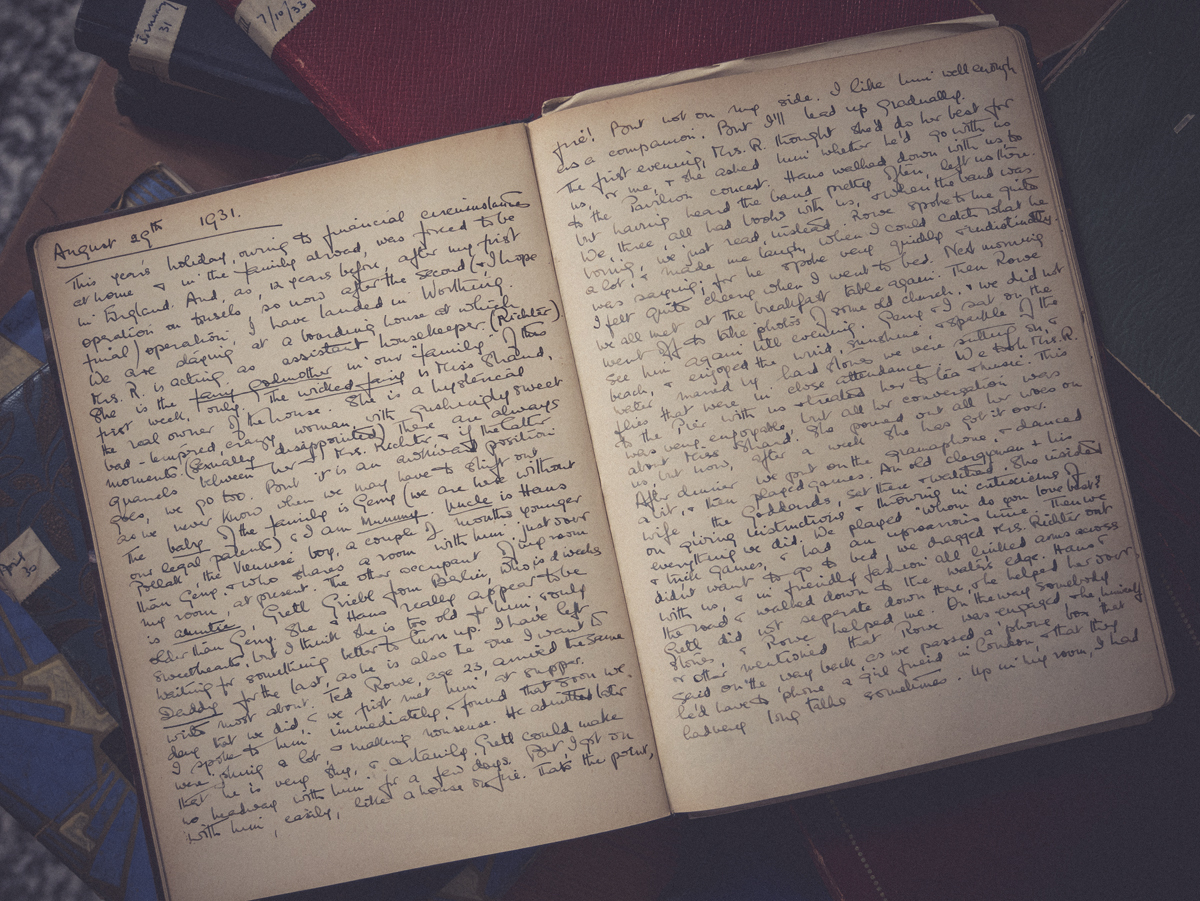 January
31
7/10/33
30
August 29th 1931.
This year's holiday, owing to financial circumstances
at home & in the family abroad, was forced to be
in England. And, as, 12 years before, after my first
operation on tonsils, so now after the second (& I hope
final) operation, I have landed in Worthing.
We are staying at a boarding house at which
Mrs. R. is acting as assistant housekeeper. (Richter)
She is the fairy godmother in our "family". If this
first week, only, the wicked fairy is Miss Shand,
the real owner of the house. She is a hysterical
bad-tempered, crazy woman, with gushingly sweet
moments. (Sexually disappointed) There are always
quarrels between her & Mrs. Richter & if the latter
goes, we go too. But it is an awkward position
as we never know when we may have to shift out
The baby of the family is Geny (we are here without
our legal parents) & I am Mummy. Uncle is Hans
Pollak, the Viennese boy, a couple of months younger
than Geny, & who shares a room with him just over
my room, at present. The other occupant of my room
is auntie, Gretl Griebl from Berlin, who is 2 weeks
older than Geny. She & Hans really appear to be
sweethearts, but I think she is too old for him, & only
waiting for something better to turn up. I have left
Daddy for the last, as he is also the one I want to
write most about. Ted Rowe, age 23, arrived the same
day that we did, & we first met him at supper.
I spoke to him immediately, & found that soon we
were playing a lot, & making nonsense. He admitted later
that he is very shy, & certainly Gretl could make
no headway with him for a few days. But I got on
with him, easily, like a house on fire. That's the point,
fire! But not on my side. I like him well enough
as a companion. But I'll lead up gradually.
The first evening, Mrs. R. thought she'd do her best for
us, or me, & she asked him whether he'd go with us
to the Pavilion concert. Hans walked down with us to
but having heard the band pretty often, left us there.
We three all had books with us, & when the band was
boring, we just read, instead. Rowe spoke to me quite
a lot, & made me laugh, when I could catch what he
was saying; for he spoke very quickly & indistinctly.
I felt quite cheery when I went to bed. Next morning
we all met at the breakfast table again. Then Rowe
went off to take photos of some old church, & we did not
see him again till evening. Geny & I sat on the
beach, & enjoyed the wind, sunshine & sparkle of the
water marred by hard stones we were sitting on, &
flies that were in close attendance. We took Mrs. R.
to the Pier with us & treated her to tea & music. This
was very enjoyable, but all her conversation was
about Miss Shand. She poured out all her woes on
us, but now, after a week she has got it over.
After dinner we put on the gramophone, & danced
a bit, & then played games. An old clergyman & his
wife, the Goddards, sat there & watched. She insisted
on giving instructions & throwing in criticisms of
everything we did. We played "Whom do you love best?"
& trick games, & had an uproarious time. Then we
didn't want to go to bed, we dragged Mrs. Richter out
with us, & in friendly fashion all linked arms across
the road & walked down to the water's edge. Hans &
Gretl did not separate down there, & he helped her over
stones, & Rowe helped me. On the way somebody
or other mentioned that Rowe was engaged & he himself
said on the way back as we passed a 'phone box that
he'd have to 'phone a girl friend in London, & that they
had very long talks sometimes. Up in my room, I had